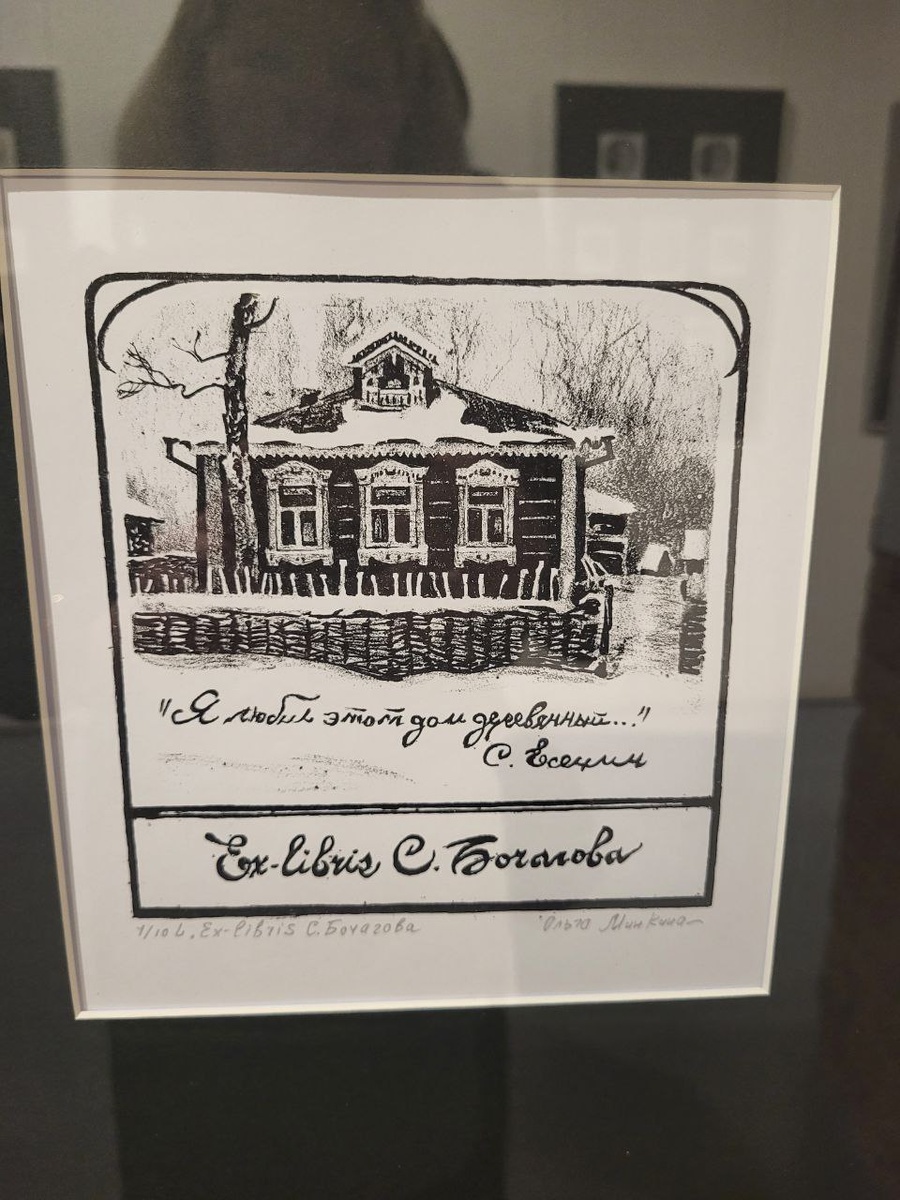 "Я любил этот дом деревянный..."
С. Есенин
Ex-libris С. Бочагова
1/10 L, Ex-libris С. Бочагова
Ольга Минкина